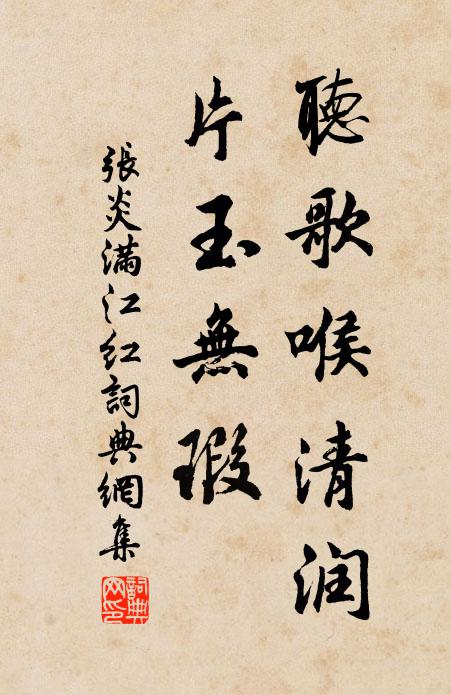 聽歌喉清润
片玉無瑕
張炎滿江红詞典網集
詞典网印